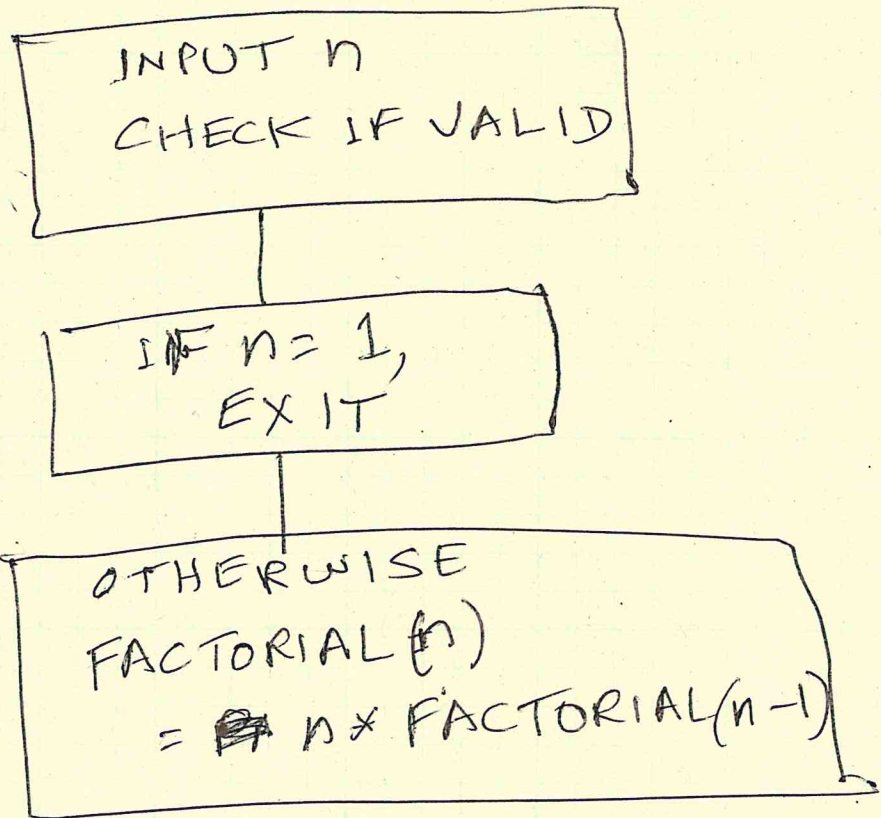 INPUT n
CHECK IF VALID
IF n = 1,
EXIT
OTHERWISE
FACTORIAL(n)
= n * FACTORIAL(n-1)